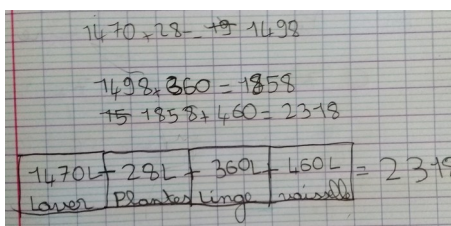 1470+28= 19 1498
1498+360=1858
15 1858+460=2318
1470L+28L+360L+460L=2318
Laver Plantes Linge vaisselle